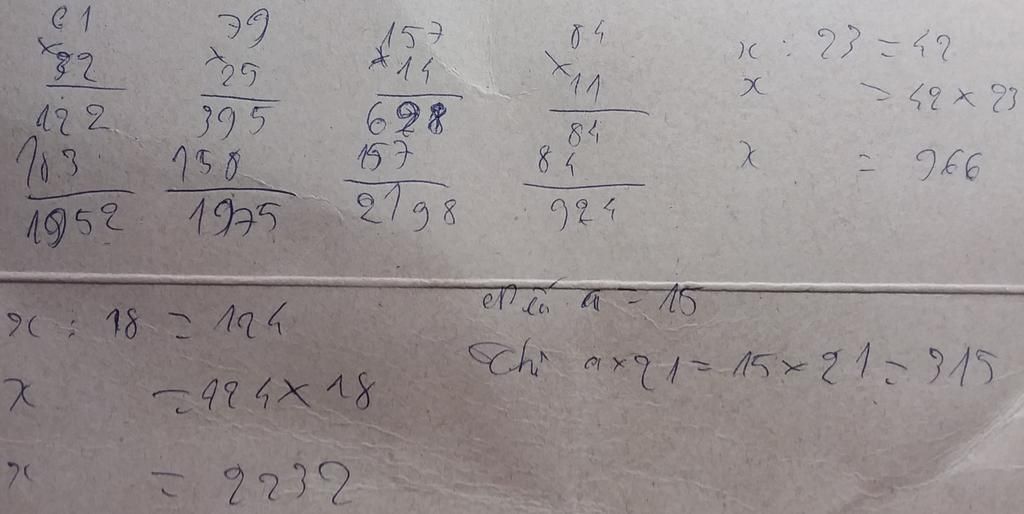 61 79 157 84 x : 23 = 42
× 32 × 25 × 14 × 11 x = 42 × 23
122 395 628 84 x = 966
183 158 157 84
1952 1975 2198 924
x : 18 = 124
x = 124 × 18
x = 2232
Nếu a = 15
Thì a × 21 = 15 × 21 = 315